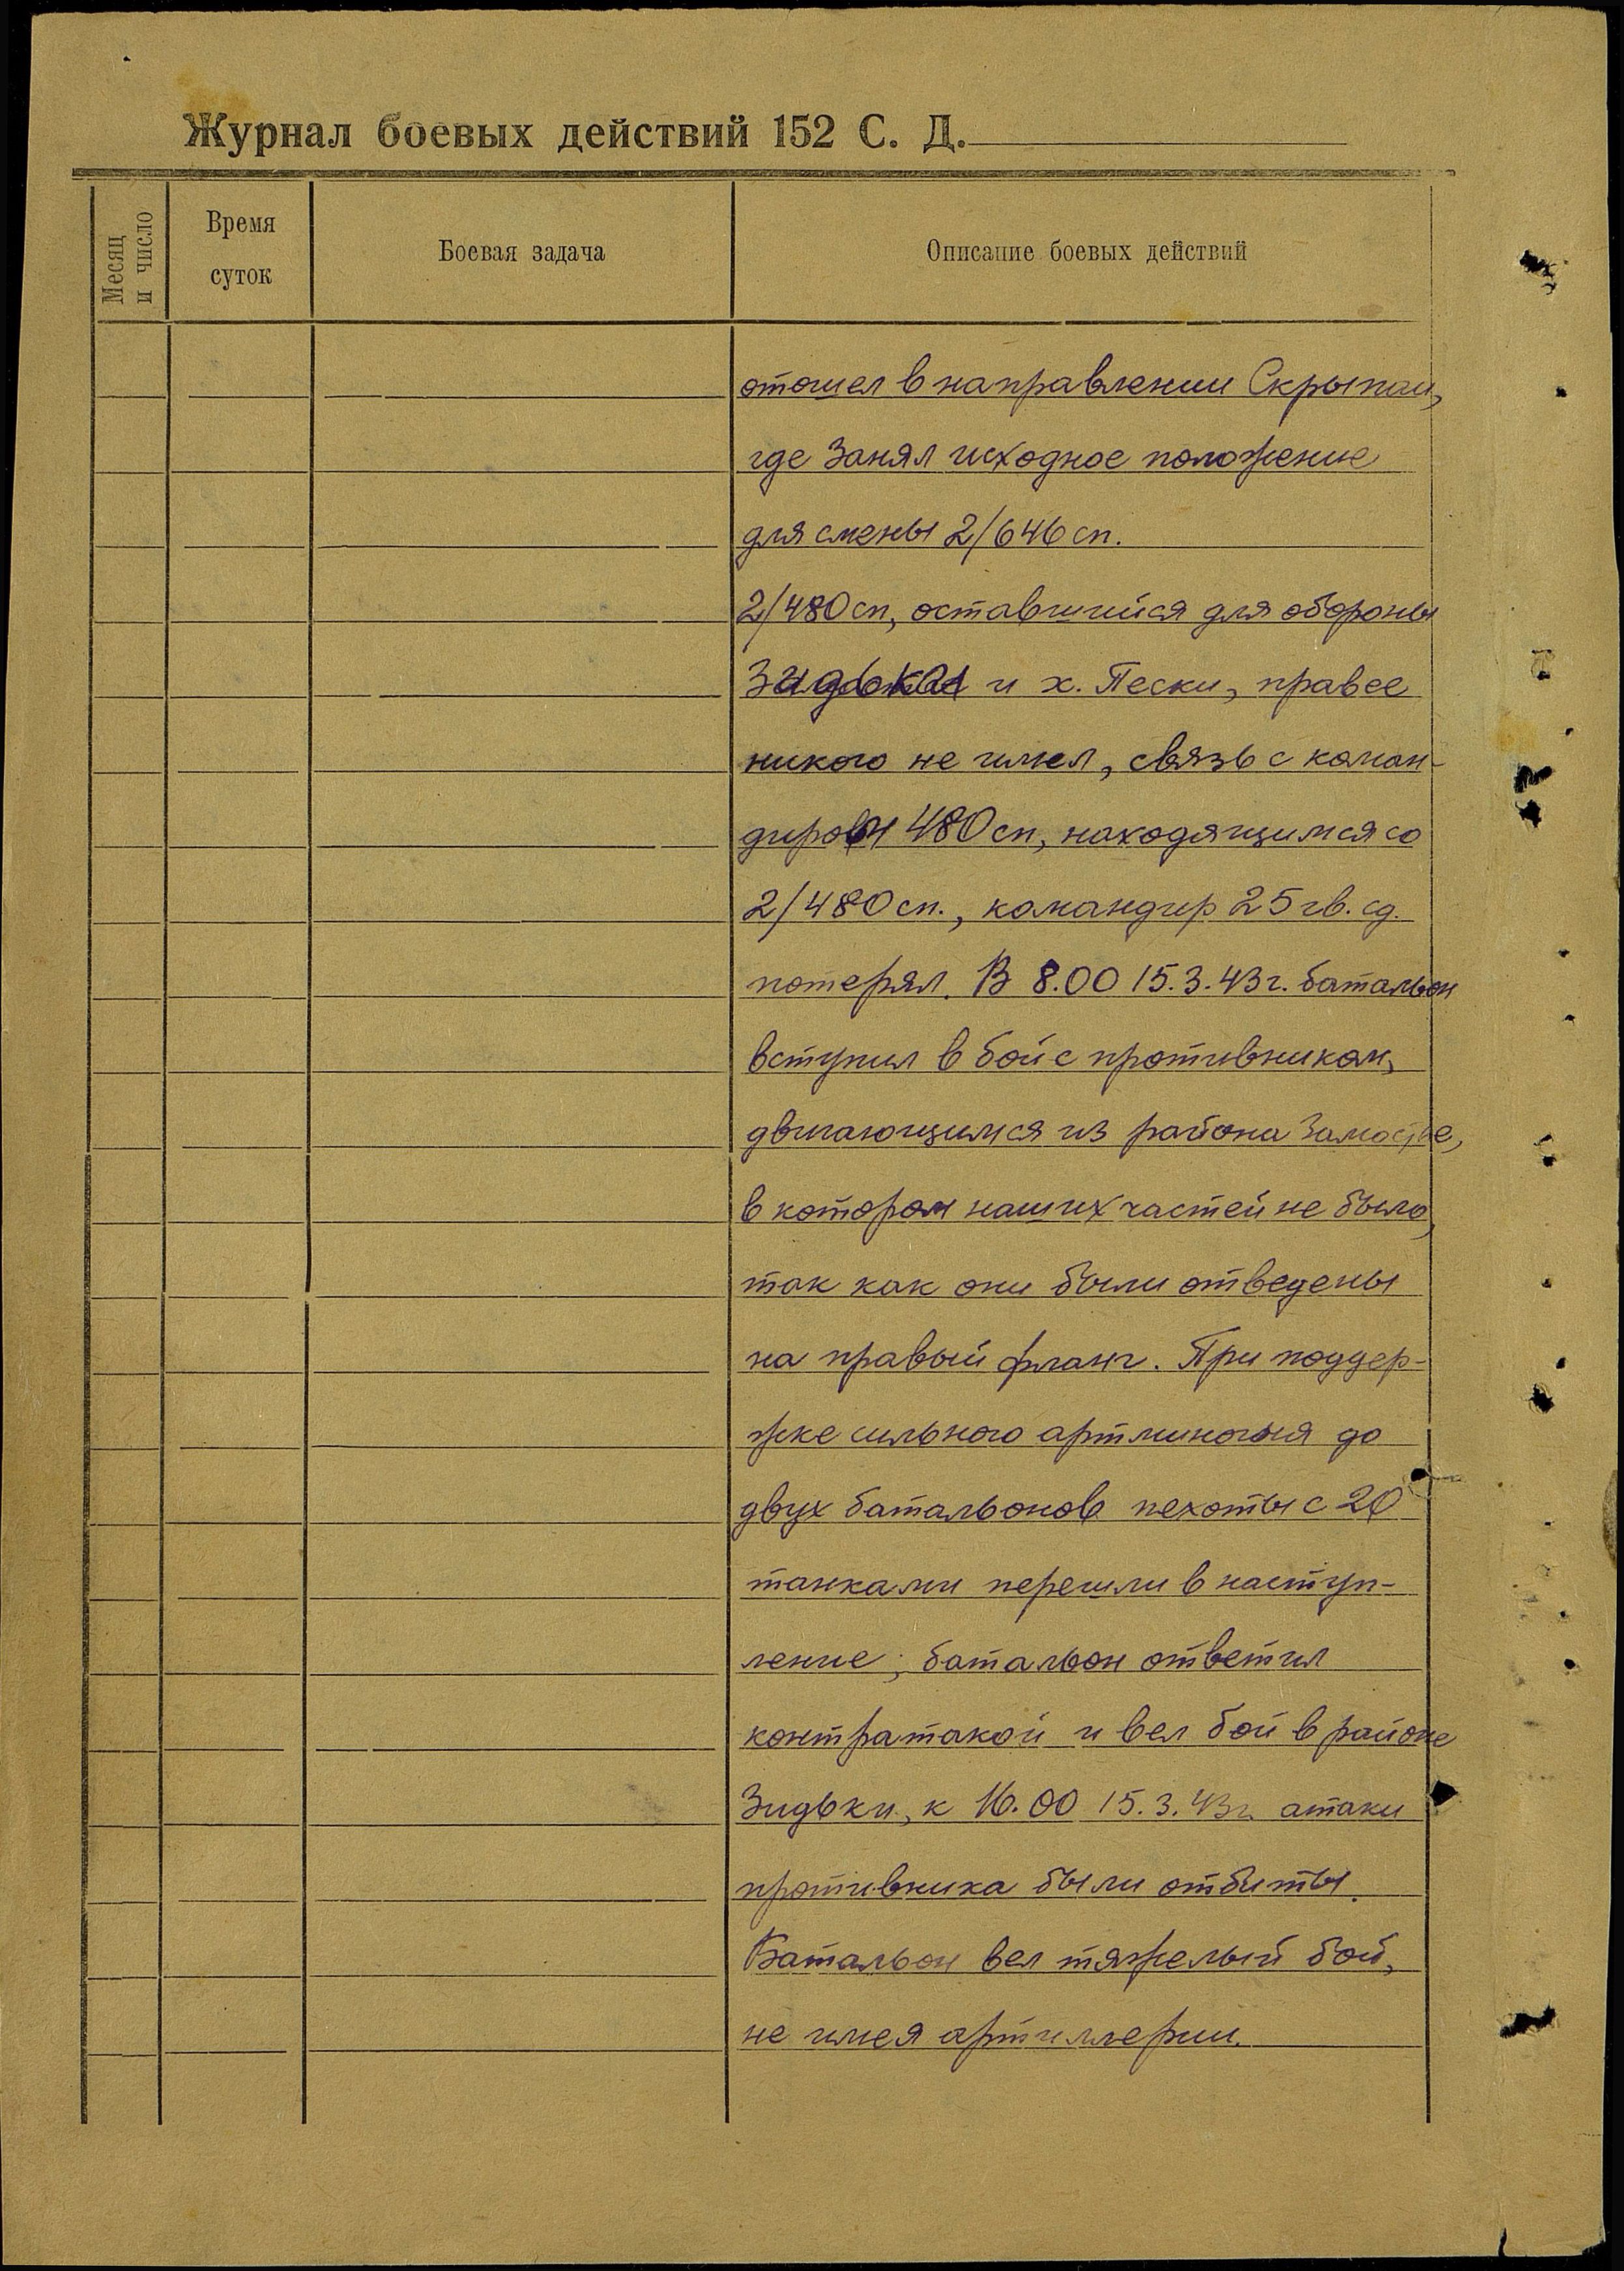 Журнал боевых действий 152 С. Д.
Месяц и число
Время суток
Боевая задача
Описание боевых действий
отошел в направлении Скрыпаи,
где занял исходное положение
для смены 2/646 сп.
2/480 сп, оставшийся для обороны
Зидьки и х. Пески, правее
никого не имел, связь с коман-
диром 480 сп, находящимся со
2/480 сп., командир 25 гв. сд.
потерял. В 8.00 15.3.43 г. батальон
вступил в бой с противником,
двигающимся из района Замостье,
в котором наших частей не было,
так как они были отведены
на правый фланг. При поддер-
жке сильного артминогня до
двух батальонов пехоты с 20
танками перешли в наступ-
ление; батальон ответил
контратакой и вел бой в районе
Зидьки, к 16.00 15.3.43 г. атаки
противника были отбиты.
Батальон вел тяжелый бой,
не имея артиллерии.